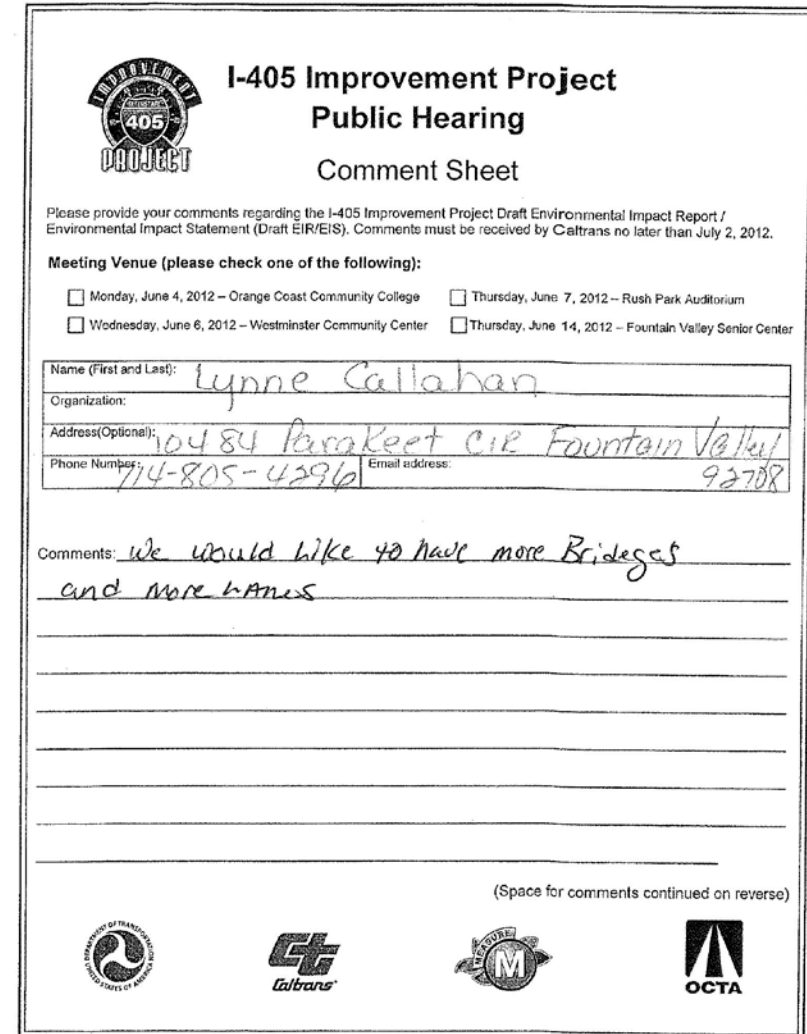 IMPROVEMENT
INTERSTATE
405
PROJECT
I-405 Improvement Project
Public Hearing
Comment Sheet
Please provide your comments regarding the I-405 Improvement Project Draft Environmental Impact Report /
Environmental Impact Statement (Draft EIR/EIS). Comments must be received by Caltrans no later than July 2, 2012.
Meeting Venue (please check one of the following):
Monday, June 4, 2012 – Orange Coast Community College
Thursday, June 7, 2012 – Rush Park Auditorium
Wednesday, June 6, 2012 – Westminster Community Center
Thursday, June 14, 2012 – Fountain Valley Senior Center
Name (First and Last): Lynne Callahan
Organization:
Address(Optional): 10484 Parakeet CIR Fountain Valley
Phone Number: 714-805-4296 Email address: 92708
Comments: We would Like to have more Brideges
and more LAnes
(Space for comments continued on reverse)
DEPARTMENT OF TRANSPORTATION
UNITED STATES OF AMERICA
Caltrans
MEASURE
M
OCTA